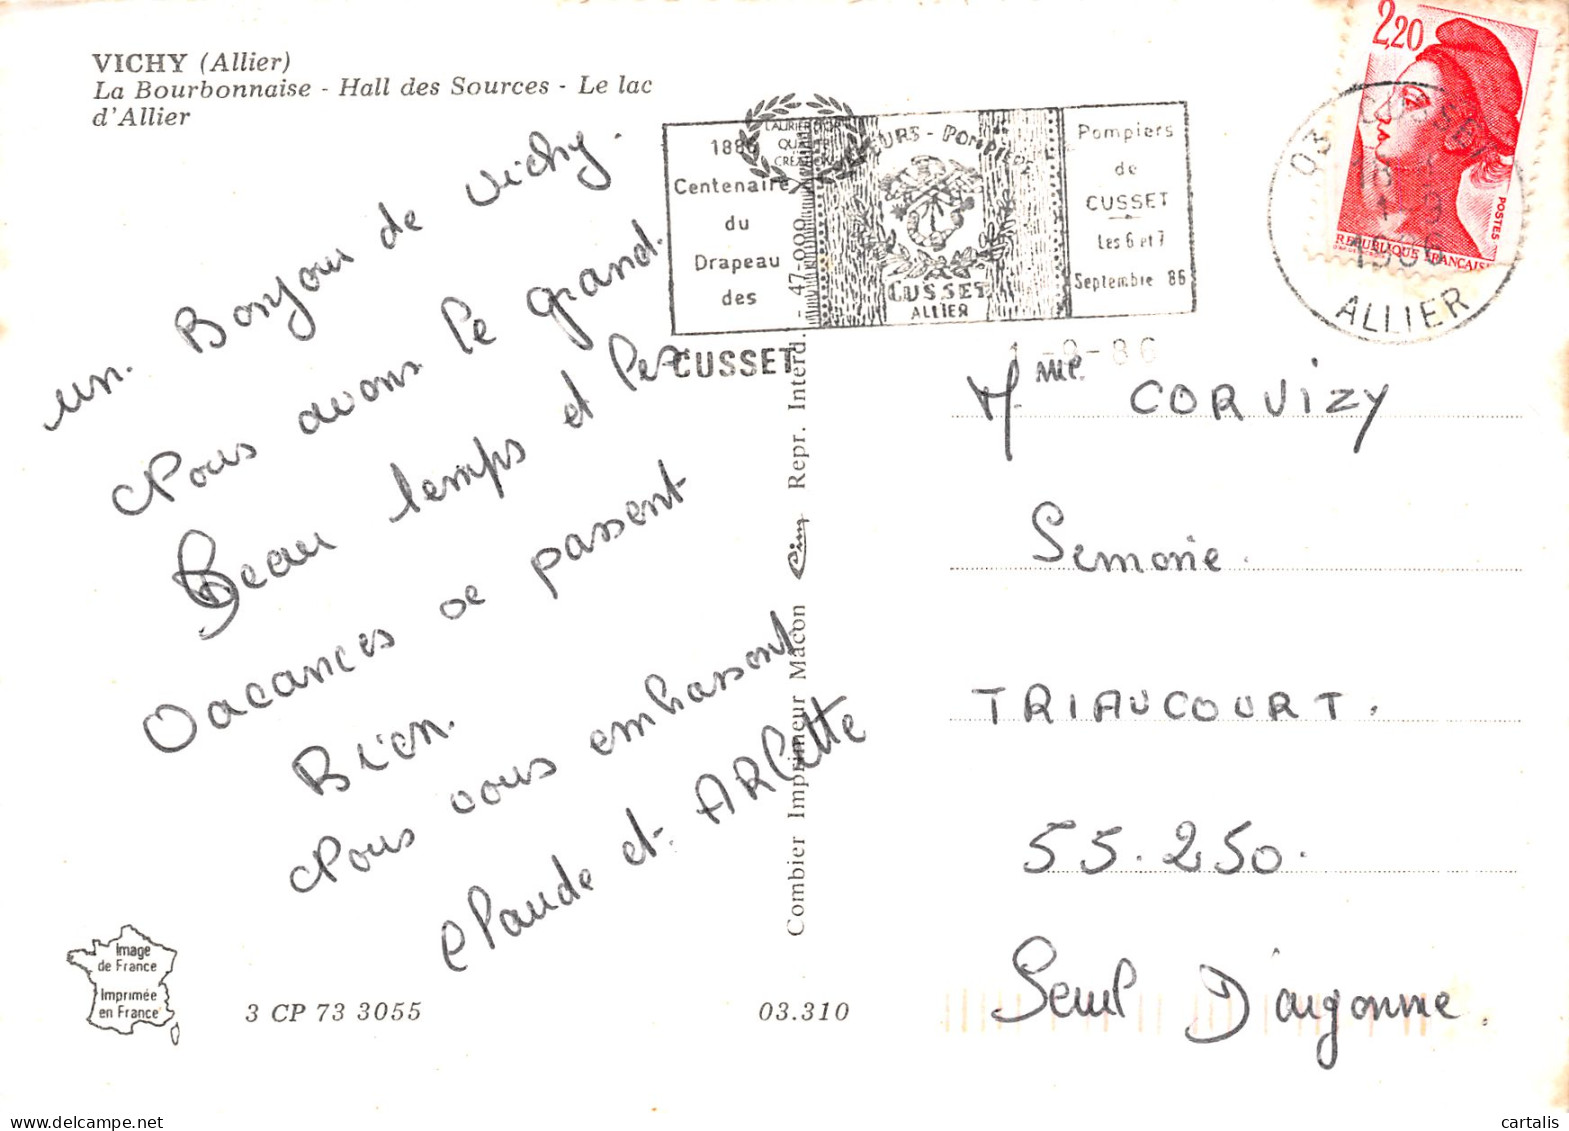 VICHY (Allier)
La Bourbonnaise - Hall des Sources - Le lac
d'Allier
un. Bonjour de Vichy.
Nous avons le grand.
Beau temps et les
Vacances se passent
Bien.
Nous vous embrassent
Claude et ARLette
1886
Centenaire
du
Drapeau
des
CUSSET
ALLIER
Pompiers
de
CUSSET
Les 6 et 7
Septembre 86
CUSSET
1-9-86
2,20
POSTES
REPUBLIQUE FRANÇAISE
03 CUSSET
1986
ALLIER
Combier Imprimeur Mâcon Cim Repr. Interd. - 47-000
Mme. CORVIZY
Semonie.
TRIAUCOURT.
55.250.
Seuil D'argonne.
Image
de France
Imprimée
en France
3 CP 73 3055
03.310
cartalis